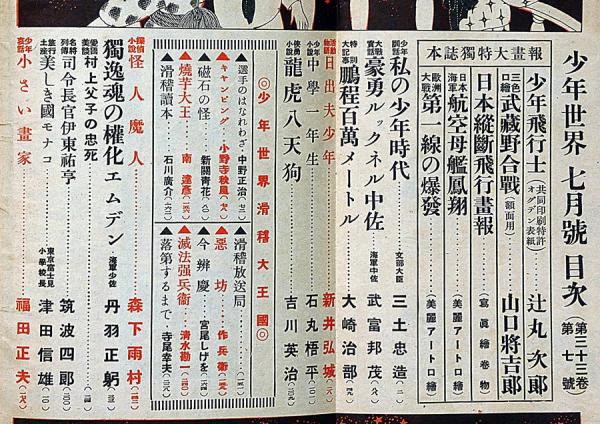 少年世界 七月號 目次
第三十三卷
第七號
本誌獨特大畫報
少年飛行士(共同印刷特許 オグデン表紙) 辻丸次郞
三色口繪 武藏野合戰(額面用) 山口將吉郞
日本縱斷飛行畫報 (寫眞繪卷物)
日本海軍 航空母艦鳳翔 (美麗アートロ繪)
歐洲大戰 第一線の爆發 (美麗アートロ繪)
少年訓話 私の少年時代 文部大臣 三土忠造
大戰實話 豪勇ルックネル中佐 海軍中佐 武富邦茂
特大記事 鵬程百萬メートル 大崎治部
日出夫少年 新井弘城
少年小說 中學一年生 石丸梧平
俠勇小說 龍虎八天狗 吉川英治
◎少年世界滑稽大王國◎
▲選手のはなれわざ 中野正治
▲キャンピング 小野寺秋風
▲磁石の怪 新關靑花
▲燒芋大王 南達彥
▲滑稽讀本 石川廣介
▲滑稽放送局
▲惡坊 作兵衞
▲今辨慶 宮尾しげを
▲滅法强兵衞 淸水勘一
▲落第するまで 寺尾幸夫
探偵小說 怪人魔人 森下雨村
獨逸魂の權化エムデン 海軍少佐 丹羽正躬
愛國美談 村上父子の忠死
名將列傳 司令長官伊東祐亨 筑波四郞
土產 美しき國モナコ 東京富士見小學校長 津田信雄
少年哀話 小さい畫家 福田正夫